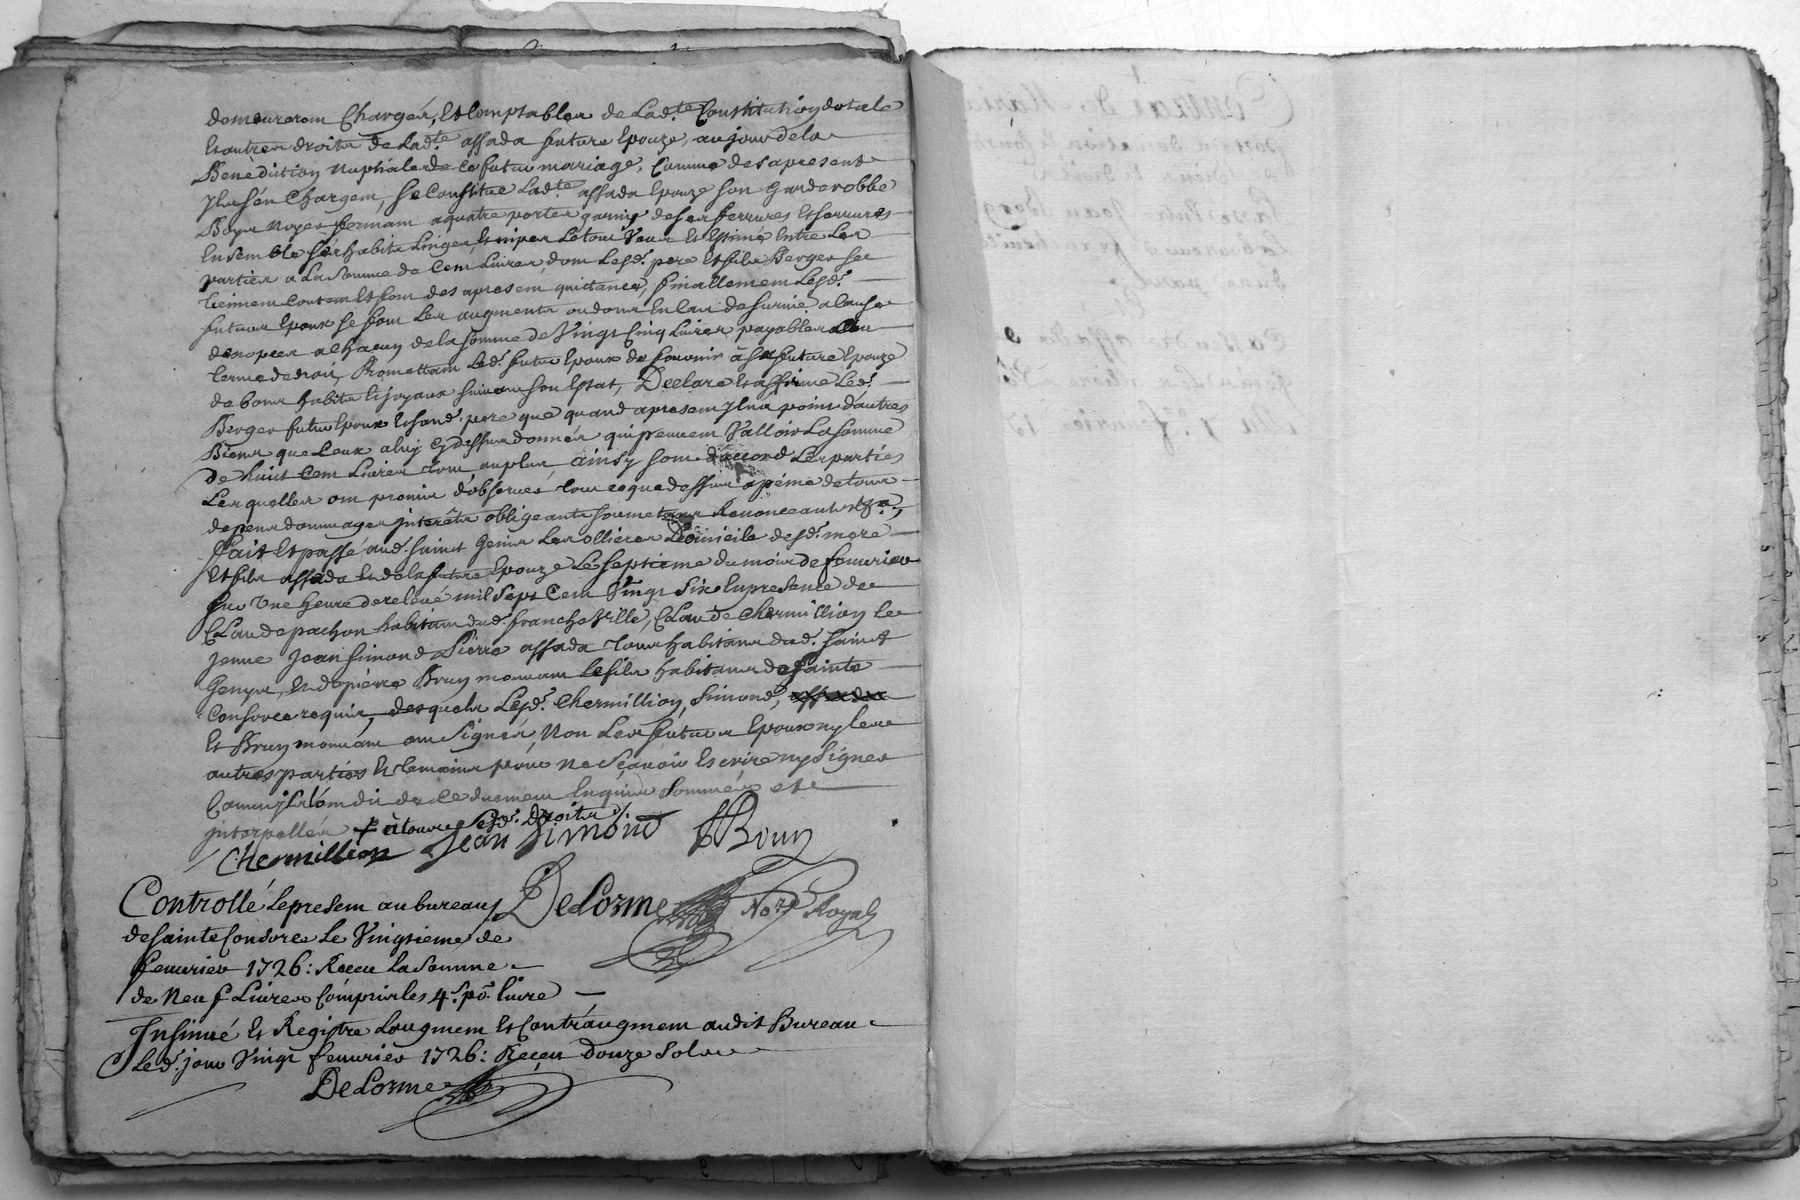 demeureront Chargés, Et Comptables de Lad.te Constitution dotale
Et autres droits de Lad.te assada future Epouze, au jour de la
Bénédiction nuptiale de ce futur mariage, Comme des apresent
Ils s'en Chargent, Se Constitue Lad.te assada Epouze son garderobbe
Boys noyer fermant a quatre portes garnis de ses ferrures Et serrures
Ensemble ses habits Linges, Et nipes Le tout Veu Et Estimé Entre Les
parties a La somme de Cent Livres, dont Lesd. pere Et fils Berger se
tiennent Contents Et font des apresent quittance, finallement Lesd.
futurs Epoux se font Les augments ou dons En Cas de survie a Cause
de nopces a Chacun de la somme de Vingt Cinq Livres payables au
terme de droit, Promettant Led. futur Epoux de fournir à sa future Epouze
de bons habits Et joyaux suivant son Estat, Declare Et affirme Led.
Berger futur Epoux Et sond. pere que quand apresent Il n'a point d'autres
Biens que Ceux a luy Cy dessus donnés qui peuvent Valloir La somme
de huit Cent Livres tout au plus, ainsy sont d'accord Les parties
Lesquelles ont promis d'observer tout ce que dessus a peine de tous
depens dommages interêts obligeants soumettants Renonceants &a.
Fait Et passé aud. saint Genis Les ollieres Domicile desd. mere
Et fils assada Et de la future Epouze Le septieme du mois de feuvrier
sur Une heure de relevé mil sept Cent Vingt six En presence de
Claude pachon habitant dud. francheville, Claude Chermillion Le
jeune Jean Simond Pierre assada tous habitants dud. saint
Genys, Et de pierre Brun monvant Le fils habitant de sainte
Consorce requis, desquels Lesd. Chermillion, Simond,
Et Brun monvant ont Signés, Non Les futurs Epoux ny Les
autres parties Et temoins pour Ne Sçavoir Escrire ny Signer
Comm'Ils l'ont dit de Ce duement Enquis Sommés et
interpellés + à tous Lesd. droits /.
Chermillion Jean Simond PBrun
Controllé Le present au bureau DeLorme No.re Royal
de sainte Consorce Le Vingtieme de
feuvrier 1726: Receu La Somme
de Neuf Livres Compris les 4.s po.r livre
Insinué Et Registre L'augment Et Contr'augment audit Bureau
Led. jour Vingt feuvrier 1726: Receu Douze Sols
DeLorme